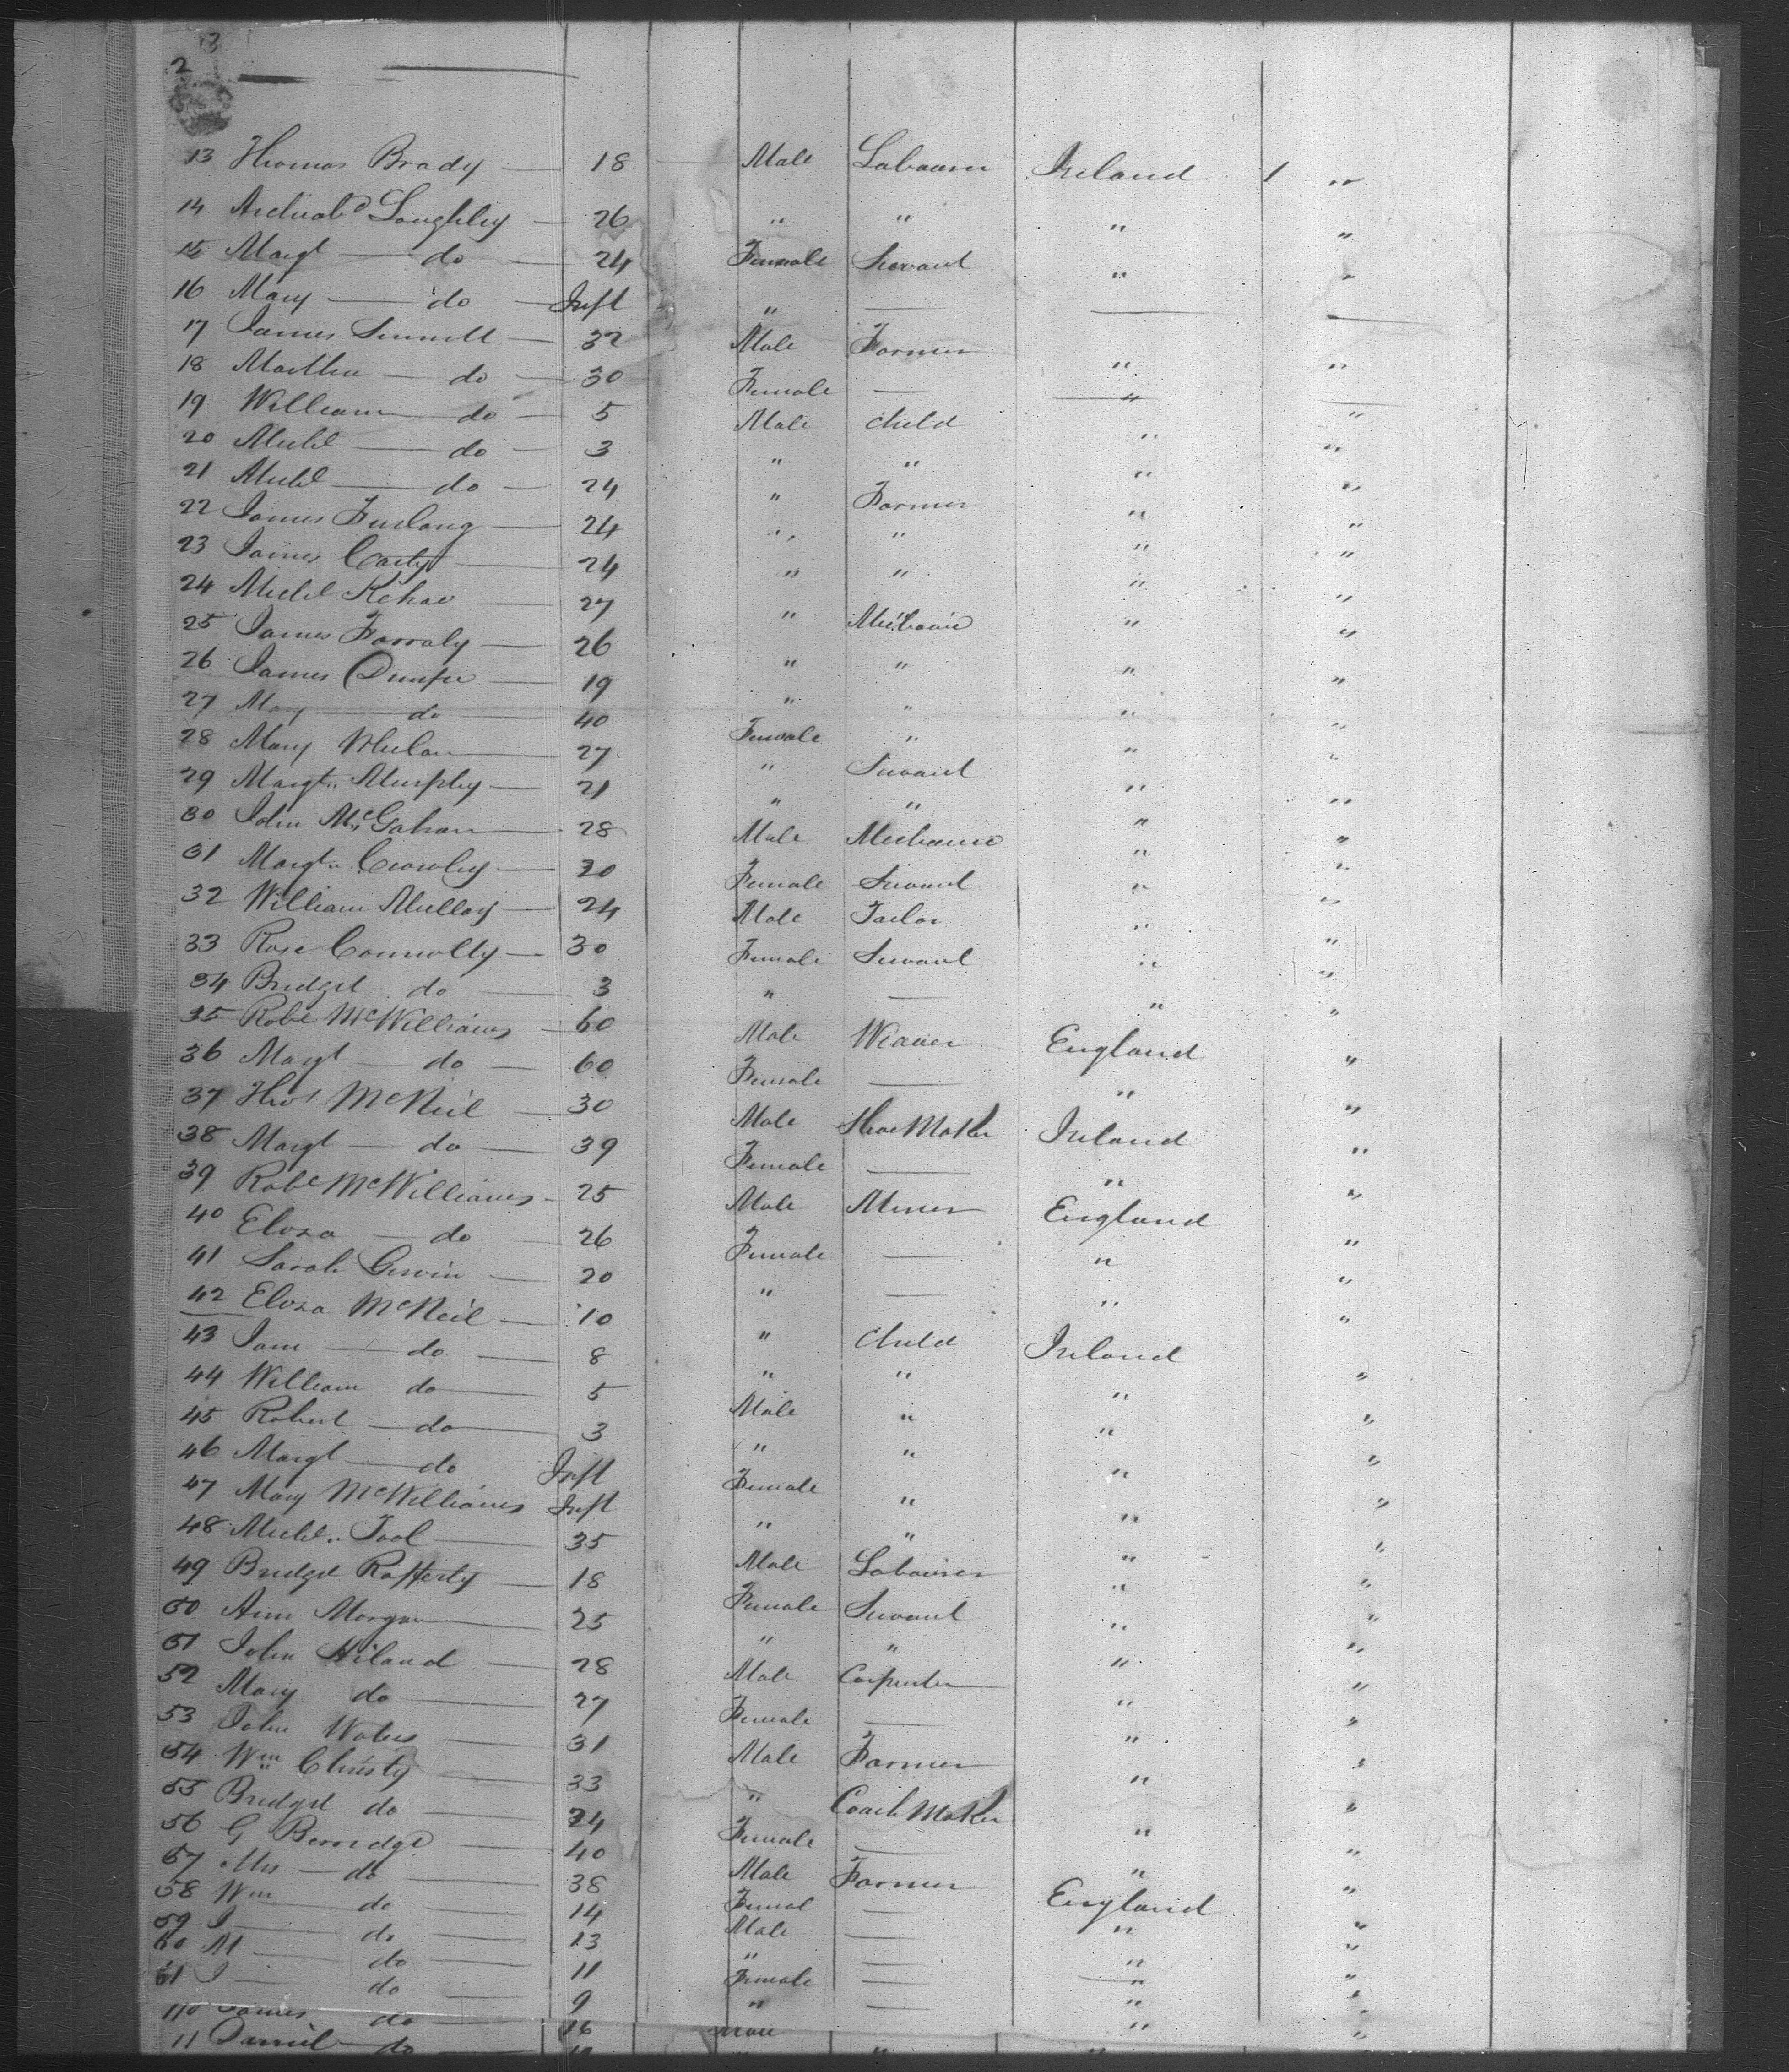 2
13 Thomas Brady — 18 Male Labourer Ireland 1 "
14 Archibd Loughley — 26 " " " "
15 Margt — do — 24 Female Servant " "
16 Mary — do — Inft " — — —
17 James Sinnott — 32 Male Farmer " "
18 Martha — do — 30 Female — " —
19 William — do — 5 Male Child " "
20 Michl — do — 3 " " " "
21 Michl — do — 24 " Farmer " "
22 James Furlong — 24 " " " "
23 James Carty — 24 " " " "
24 Michl Kehoe — 27 " Mechanic " "
25 James Farraly — 26 " " " "
26 James Dunfee — 19 " " " "
27 Mary — do — 40 Female " " "
28 Mary Whelan — 27 " Servant " "
29 Margt Murphy — 21 " " " "
30 John McGahan — 28 Male Mechanic " "
31 Margt Crowley — 20 Female Servant " "
32 William Mullay — 24 Male Tailor " "
33 Rose Connolly — 30 Female Servant " "
34 Bridget do — 3 " — " "
35 Robt McWilliams — 60 Male Weaver England "
36 Margt — do — 60 Female — " "
37 Thos McNeil — 30 Male Shoe Maker Ireland "
38 Margt — do — 39 Female — " "
39 Robt McWilliams — 25 Male Miner England "
40 Eliza — do — 26 Female — " "
41 Sarah Gerwin — 20 " — " "
42 Eliza McNeil — 10 " Child Ireland "
43 Jane — do — 8 " " " "
44 William do — 5 Male " " "
45 Robert — do — 3 " " " "
46 Margt — do Inft Female " " "
47 Mary McWilliams Inft " " " "
48 Michl Tool — 35 Male Labourer " "
49 Bridget Rafferty — 18 Female Servant " "
50 Ann Morgan — 25 " " " "
51 John Hiland — 28 Male Carpenter " "
52 Mary do — 27 Female — " "
53 John Waters — 31 Male Farmer " "
54 Wm Christy — 33 " Coach Maker " "
55 Bridget do — 24 Female — " "
56 G Berridge — 40 Male Farmer England "
57 Mrs — do — 38 Femal — " "
58 Wm — do — 14 Male — " "
59 J — do — 13 " — " "
60 M — do — 11 Female — " "
61 J — do — 9 " — " "
110 James do — 16 Male "
11 Daniel — do